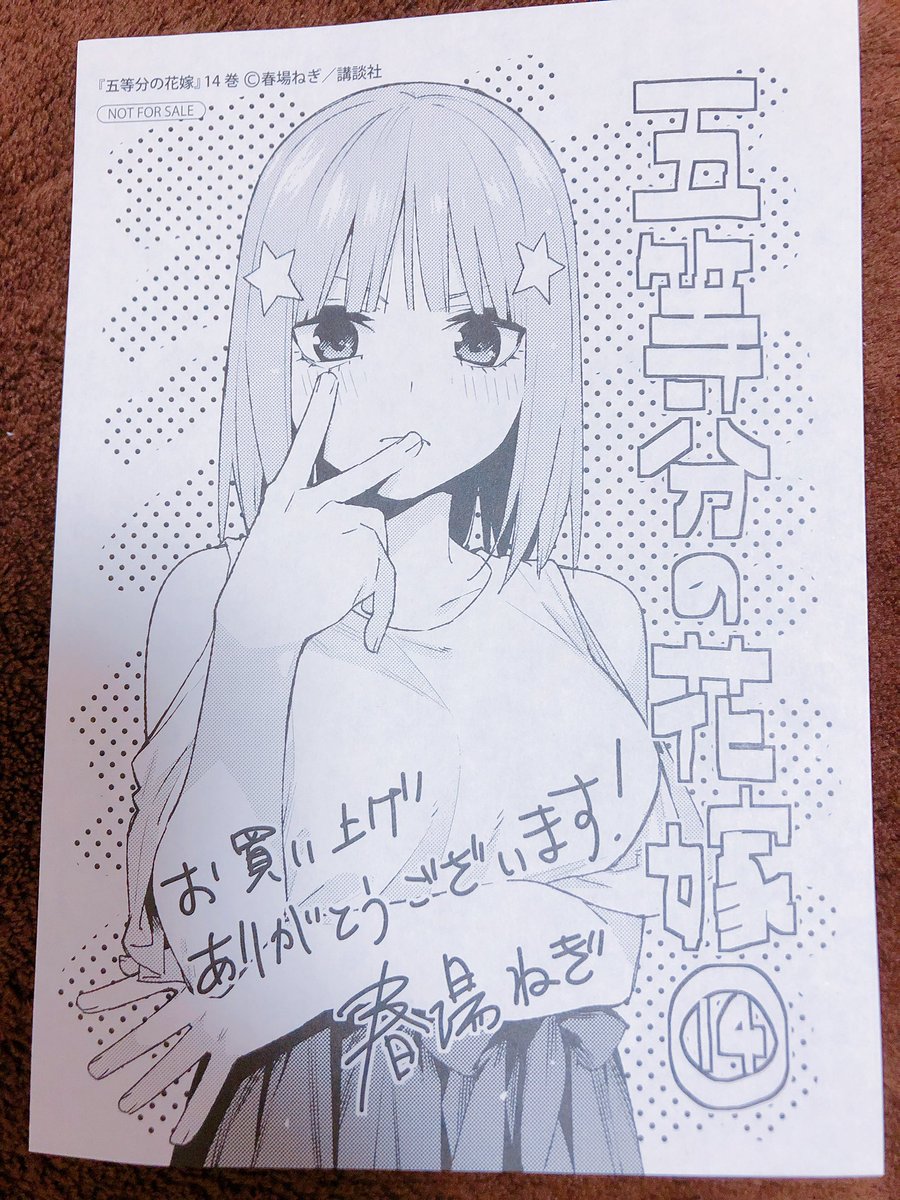 『五等分の花嫁』14巻 ©春場ねぎ／講談社
NOT FOR SALE
五等分の花嫁
14
お買い上げ
ありがとうございます!
春場ねぎ